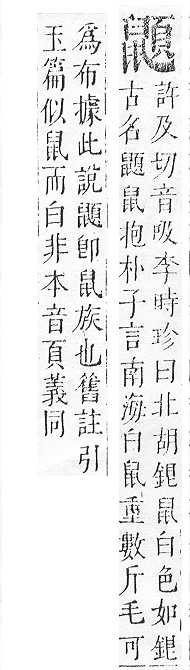 許及切音吸李時珍曰北胡銀鼠白色如銀
古名鼠抱朴子言南海白鼠重數斤毛可
爲布據此說卽鼠族也舊註引
玉篇似鼠而白非本音頁義同